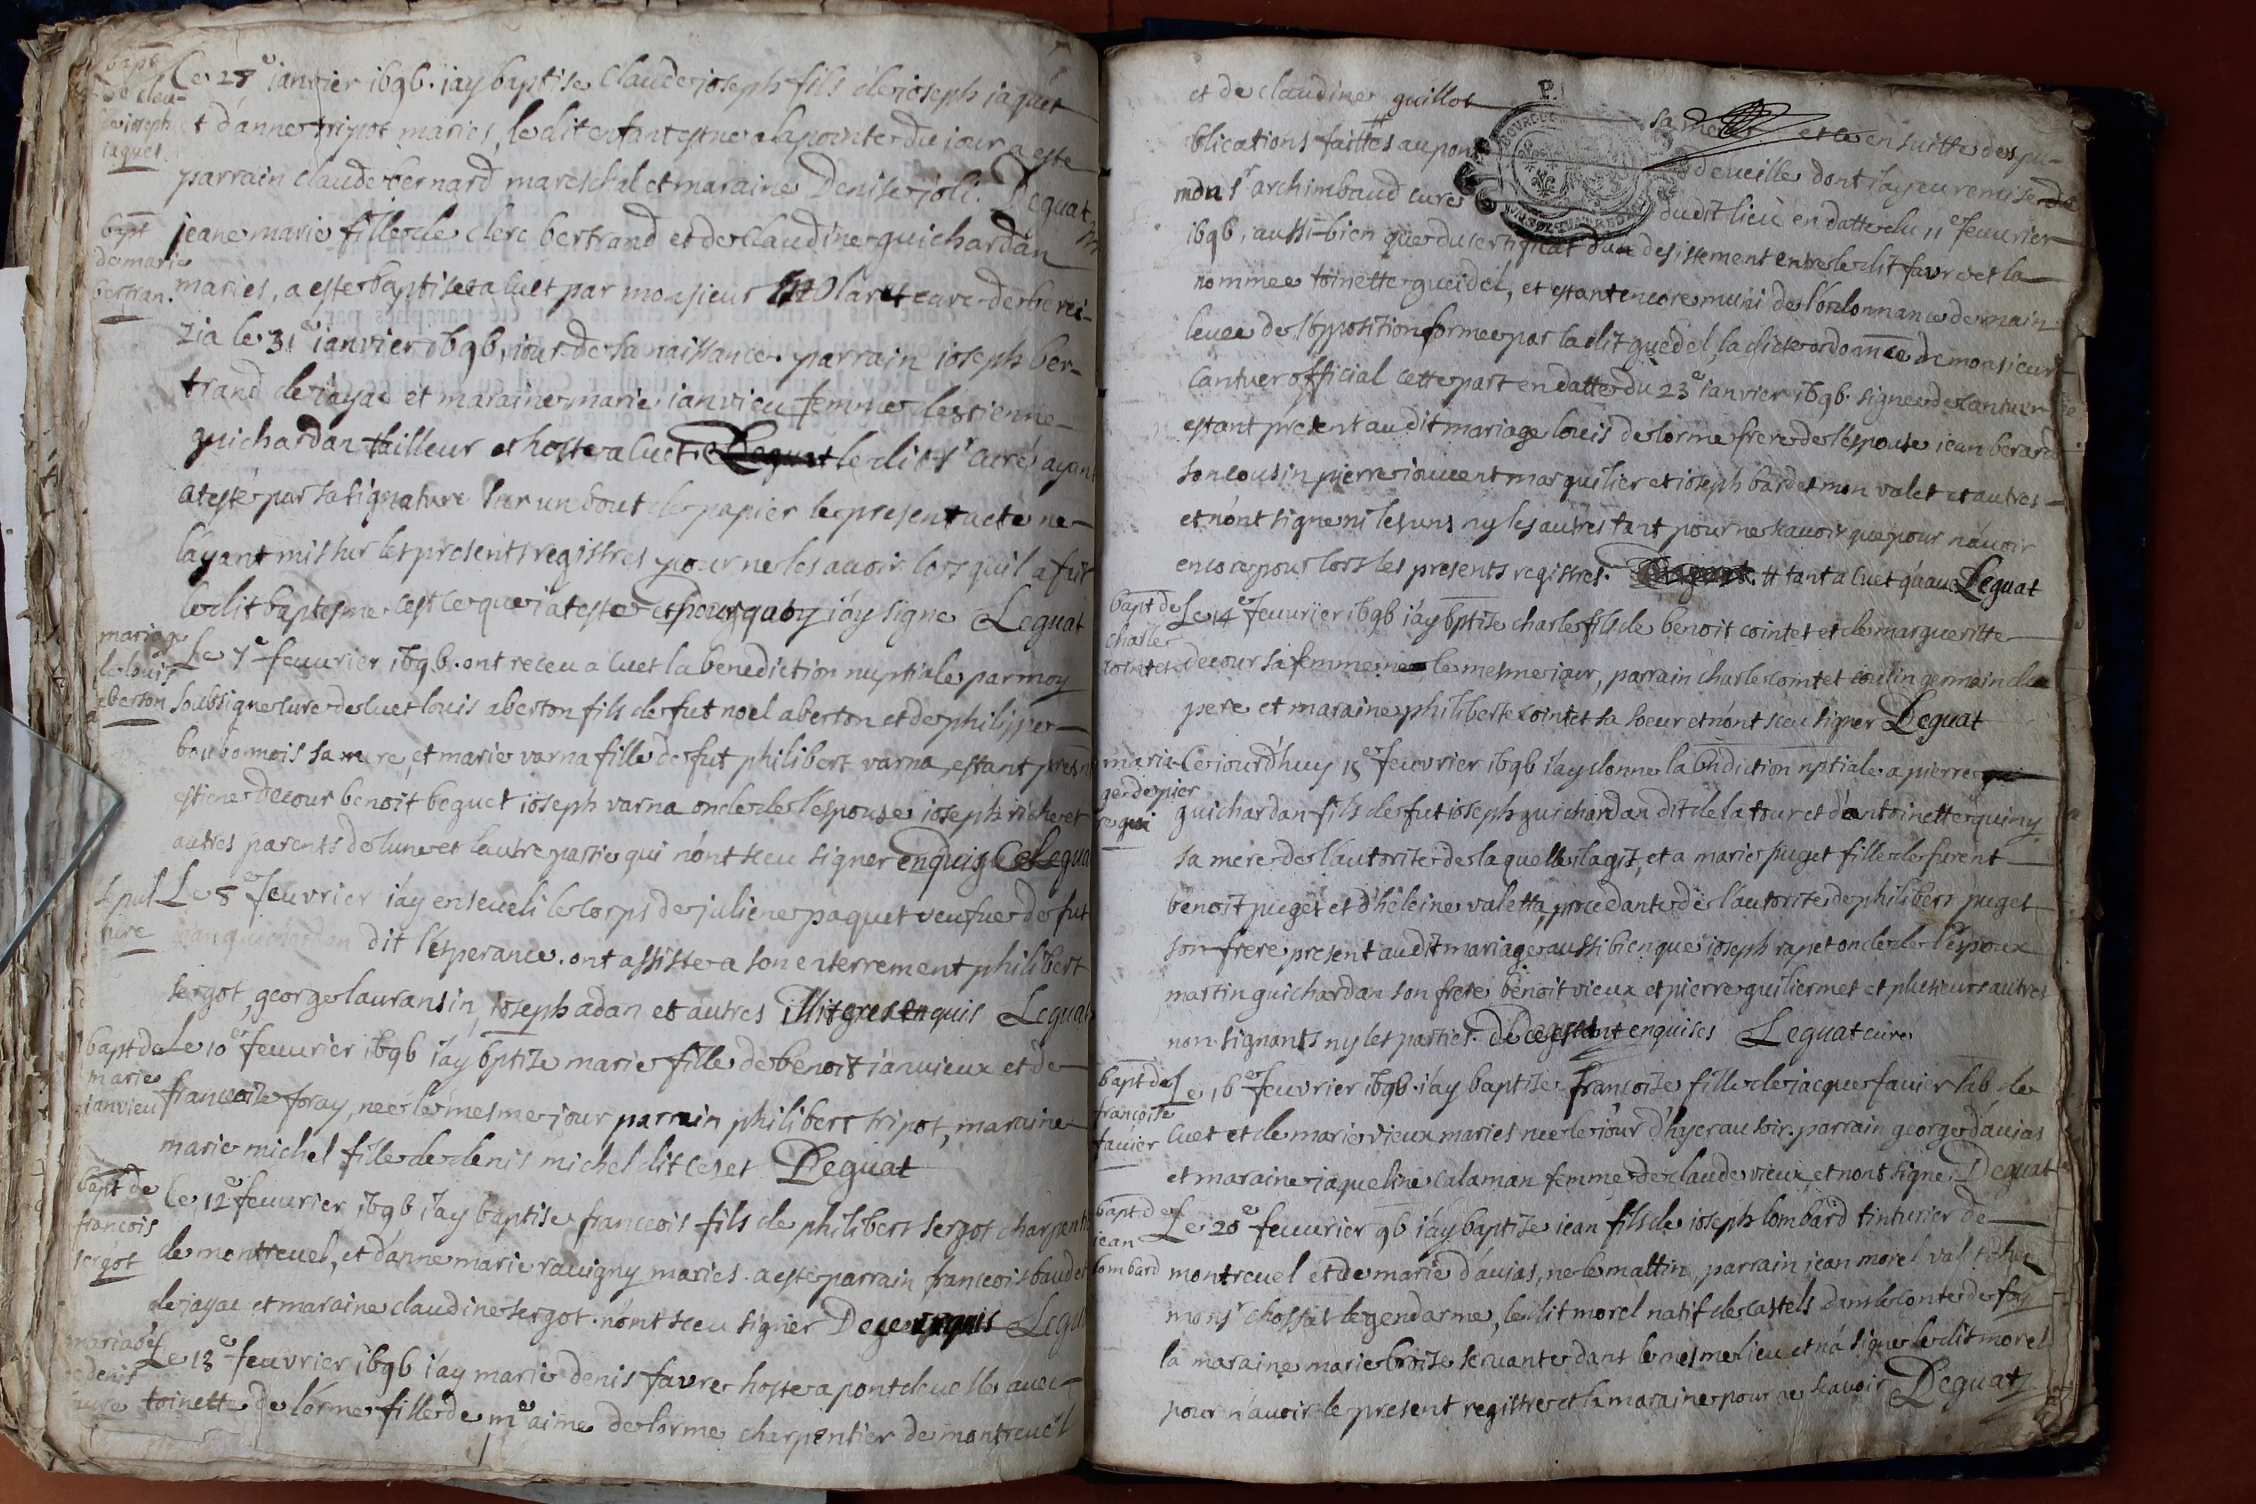 bapt
de clau-
de joseph
iaquet.
Le 27e ianvier 1696. iay baptise Claude ioseph fils de ioseph iaquet
et d'anne tripot maries, le dit enfant est ne a la pointe du iour a este
parrain claude bernard mareschal et maraine Denise joli. Deguat
bapt
de marie
bertran.
jeane marie fille de clerc bertrand et de claudine guichardan
maries, a este baptisee a cuet par monsieur curé de berei-
zia le 31e ianvier 1696, iour de sa naissance. parrain ioseph ber-
trand de iayac et maraine marie ianvieu femme destienne
guichardan tailleur et hoste a cuet. le dit sr curé ayant
atesté par sa signature sur un bout de papier le present acte ne
l'ayant mis sur les presents registres pour ne les avoir lors quil a fait
le dit baptesme cest ce que i'ateste et i'ay signe Leguat
mariage
de louis
aberton
Le 7e feuvrier 1696. ont receu a cuet la benediction nuptiale par moy
soubsigne cure de cuet louis aberton fils de fut noel aberton et de philippe
boubonnois sa mere, et marie varna fille de fut philibert varna, estant presn
estiene decour benoit beguet ioseph varna oncle de l'espouse ioseph richet et
autres parents de l'une et l'autre partie qui n'ont sceu signer enquis Leguat
sepul
ture
Le 8e feuvrier i'ay enseveli le corps de juliene paquet veufue de fut
jean guichardan dit l'esperance. ont assiste a son enterrement philibert
sergot, george lauransin, ioseph adan et autres illitgres enquis Leguat
bapt de
marie
ianvieu
Le 10e feuvrier 1696 i'ay bptise marie fille de benoit ianvieux et de
francoise foray, née le mesme jour parrain philibert tripot, maraine
marie michel fille de denis michel dit Leguat
bapt de
francois
sergot
Le 12e feuvrier 1696 i'ay baptise franceois fils de philibert sergot charpentier
de montrevel, et d'anne marie ravigny maries. a este parrain franceois baudet
de jayac et maraine claudine sergot. n'ont sceu signer De ce enquis Leguat
mariage
de denis
favre
Le 13e feuvrier 1696 i'ay marie denis favre hoste a pont de velle avec
toinette de l'orme fille de me aime de lorme charpentier de montrevel
et de claudine guillot sa mere et ce ensuitte des pu-
blications faittes au pont de veille dont iay eu remise de
mon sr archimbaud cure du dit lieu en datte du 11e feuvrier
1696, aussi-bien que du certificat d'un desistement entre le dit favre et la
nommee toinette gueidel, et estant encore muni de l'ordonnance de main
levee de l'opposition formee par la dit guedel, la dicte ordonance de monsieur
Cantuer official cette part en datte du 23e ianvier 1696. signee de Cantuer
estant present au dit mariage louis de lorme frere de l'espouse iean berard
son cousin pierre iouvent marguilier et ioseph bardet mon valet et autres
et n'ont signe ni les uns ny les autres tant pour ne scavoir que pour n'avoir
encore pour lors les presents registres. # tant a cuet qu'au Leguat
bapt de
charle
cointet
Le 14e feuvrier 1696 i'ay bptise charle fils de benoit cointet et de margueritte
decour sa femme le mesme iour, parrain charle cointet cousin germain du
pere et maraine philiberte cointet sa soeur et n'ont sceu signer Deguat
maria-
ge de pier
re gui
Ce iourd'huy 15e feuvrier 1696 i'ay donne la bndiction nptiale a pierre
guichardan fils de fut ioseph guichardan dit de la tour et d'antoinette quiny
sa mere de l'autorite de laquelle il agit, et a marie puget fille de furent
benoit puget et d'heleine valetta, procedante de l'autorite de philibert puget
son frere present au dit mariage aussi bien que ioseph rapet oncle de l'espoux
martin guichardan son frere benoit vieux et pierre guiliermet et plusieurs autres
non signants ny les parties. de ce enquises Leguat cure
bapt de
francoise
favier
Le 16e feuvrier 1696. i'ay baptise francoise fille de jacque favier hab. de
Cuet et de marie vieux maries nee le iour d'hyer au soir. parrain george d'aujas
et maraine jaqueline calaman femme de claude vieux, et n'ont signe. Deguat
bapt de
iean
lombard
Le 20e feuvrier 96 i'ay baptise iean fils de ioseph lombard tinturier de
montrevel et de marie d'aujas, ne le mattin, parrain iean morel valet de
monsr chossat le gendarme, le dit morel natif de castels dans le conte de
la maraine marie broise servante dans le mesme lieu et n'a signe le dit morel
pour n'avoir le present registre et la maraine pour ne scavoir Deguat